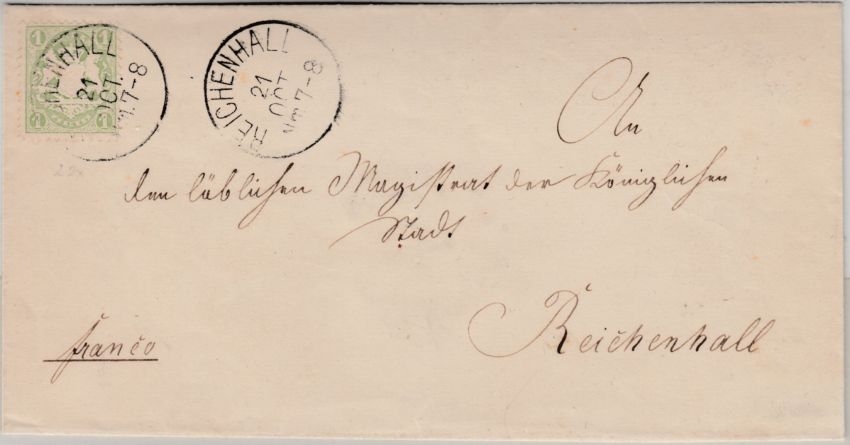 1 1
1 1
HENHALL
21
OCT.
Nm.7-8
REICHENHALL
21
OCT
Nm 7-8
An
den löblichen Magistrat der Königlichen
Stadt
Reichenhall
franco